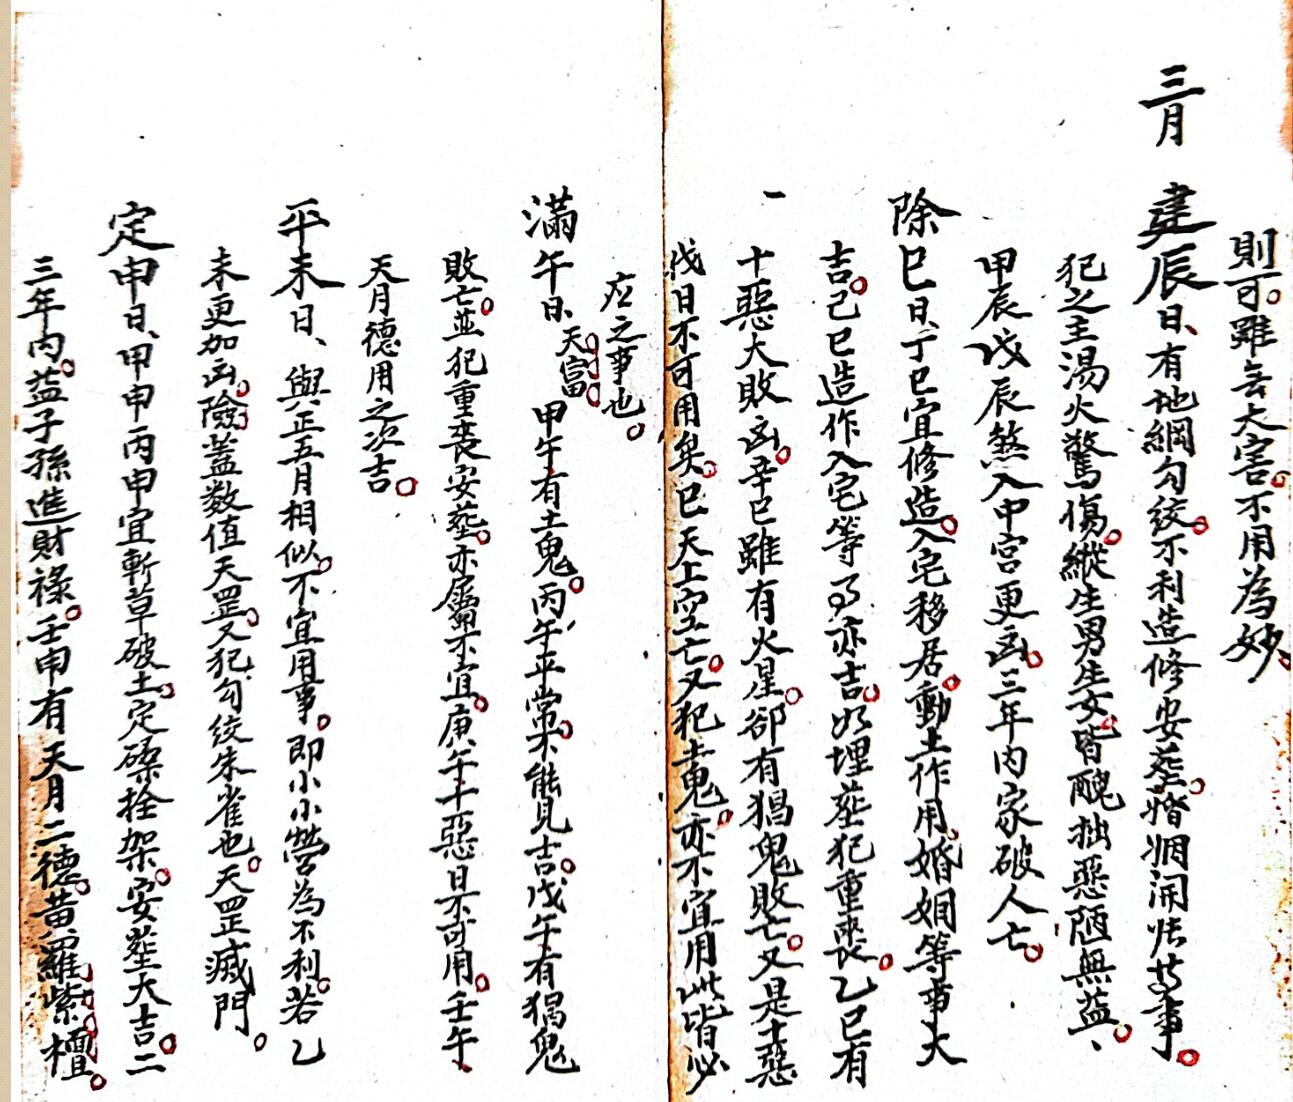 則可。雖無大害。不用為妙。
三月 建辰日、有地網勾绞。不利造修安葬。婚姻開张等事。
犯之主湯火驚傷。縱生男生女。皆醜拙惡陋無益。、
甲辰戊辰煞入中宮更凶。三年内家破人亡。
除巳日、丁巳宜修造。入宅移居。動土作用、婚姻等事大
吉。己巳造作入宅等事亦吉。如埋葬犯重喪。乙巳有
十惡大敗凶。辛巳雖有火星。卻有猖鬼敗亡。又是十惡
伐日不可用矣。巳天上空亡。又犯土鬼。亦不宜用此皆必
应之事也。
滿午日、天富 甲午有土鬼。丙午平常。不能見吉。戊午有猖鬼
敗亡。並犯重喪安葬。亦屬不宜。庚午十惡日不可用。壬午、
天月德用之次吉。
平未日、與正五月相似。不宜用事。即小小營為不利。若乙
未更加凶。險。蓋数值天罡。又犯勾绞朱雀也。天罡滅門。
定申日、甲申丙申宜斬草破土。定磉拴架。安葬大吉。二
三年内。益子孫進財祿。壬申有天月二德。黄羅紫檀。